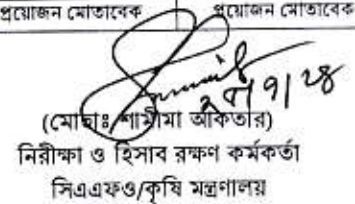 প্রয়োজন মোতাবেক প্রয়োজন মোতাবেক
(মোছাঃ শামীমা আকতার)
নিরীক্ষা ও হিসাব রক্ষণ কর্মকর্তা
সিএএফও/কৃষি মন্ত্রণালয়